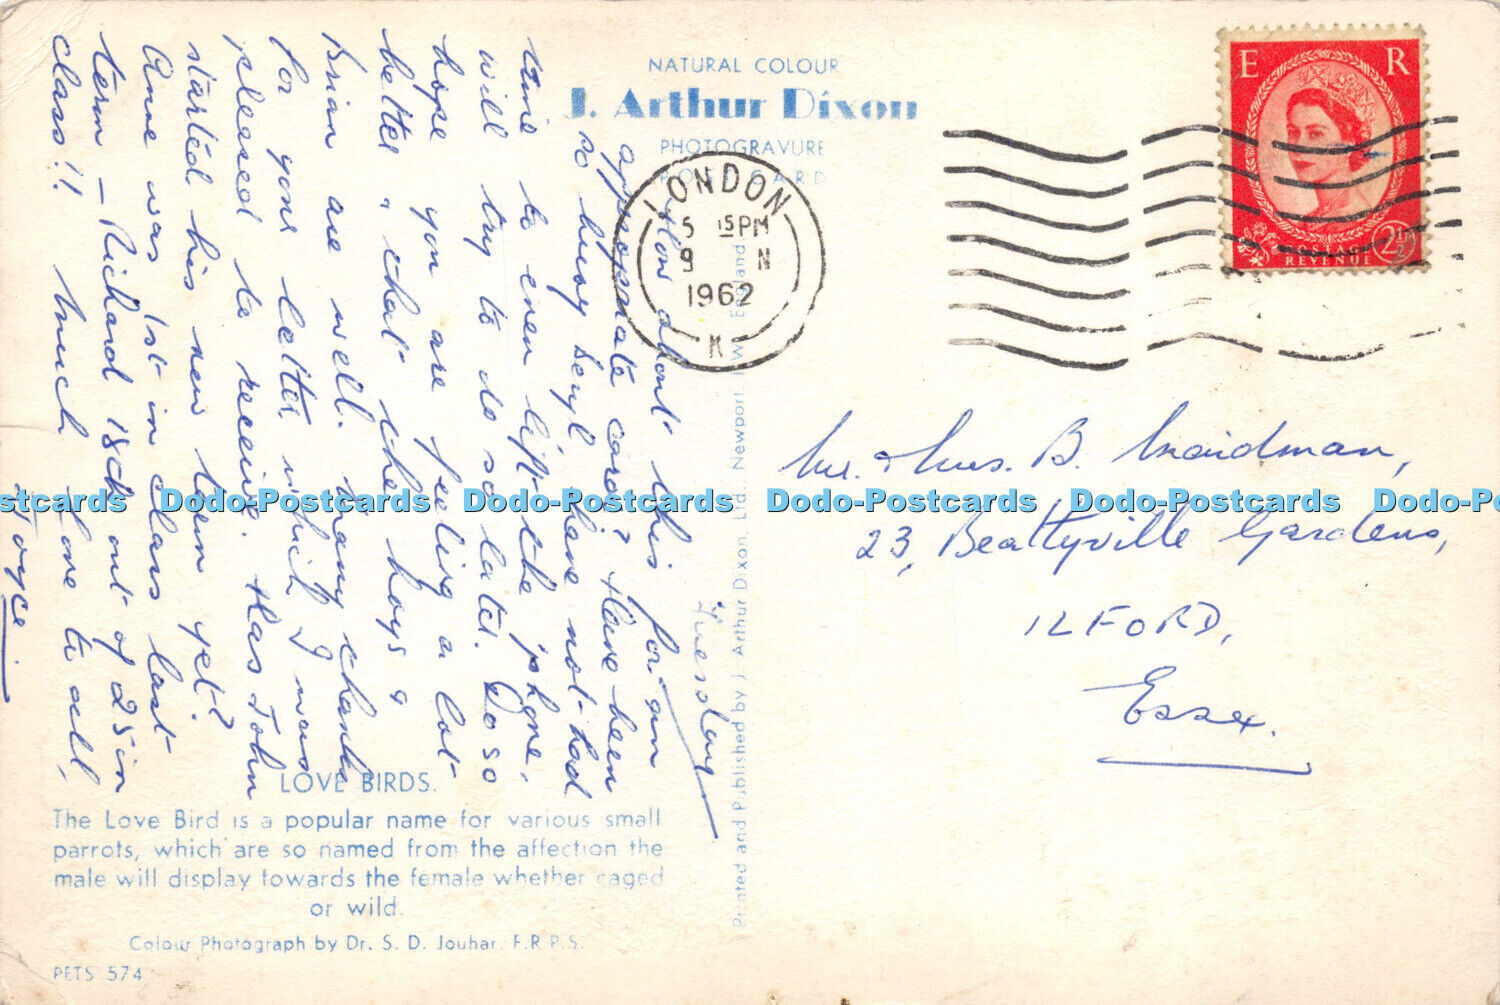 NATURAL COLOUR
J. Arthur Dixon
PHOTOGRAVURE
POST CARD
LONDON
5 15 PM
9 N
1962
K
E R
POSTAGE
REVENUE
2½
Tuesday
How about this for an
appropriate card? Have been
so busy Beryl have not had
time to even lift the 'phone.
will try to do so later. Do so
hope you are feeling a lot
better & that the boys &
Brian are well. Many thanks
for your letter which I was
pleased to receive. Has John
started his new term yet?
Anne was 1st in class last
term – Richard 18th out of 25 in
class!! Much love to all,
Joyce
Mr. & Mrs. B. Maidman,
23, Beattyville Gardens,
ILFORD,
Essex.
Printed and Published by J. Arthur Dixon, Ltd., Newport I.W. England
LOVE BIRDS.
The Love Bird is a popular name for various small
parrots, which are so named from the affection the
male will display towards the female whether caged
or wild.
Colour Photograph by Dr. S. D. Jouhar, F.R.P.S.
PETS 574
Dodo-Postcards Dodo-Postcards Dodo-Postcards Dodo-Postcards Dodo-Postcards